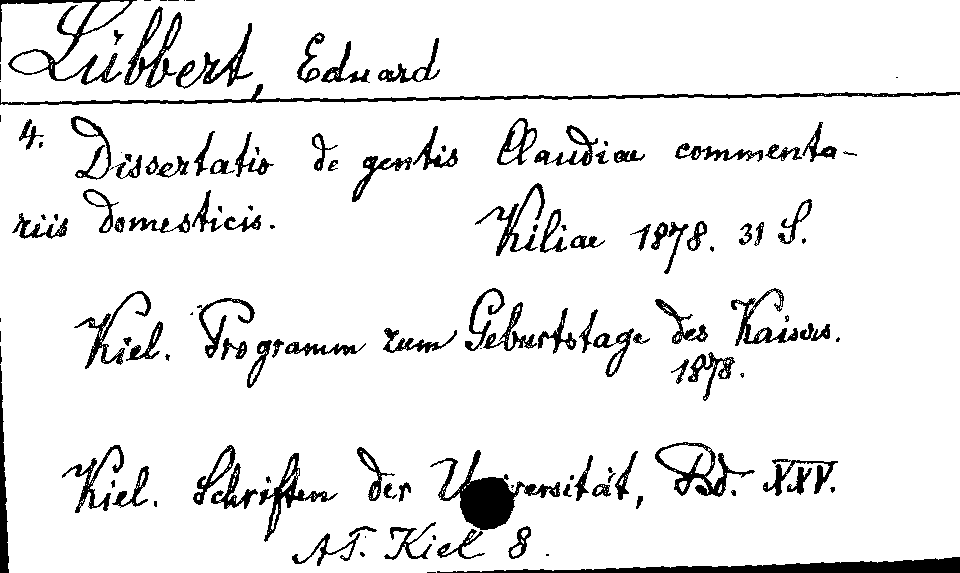 Lübbert, Eduard
4. Dissertatio de gentis Claudiae commenta-
riis domesticis. Kiliae 1878. 31 S.
Kiel. Programm zum Geburtstage des Kaisers.
1878.
Kiel. Schriften der Universität, Bd. XXV.
AT. Kiel 8.